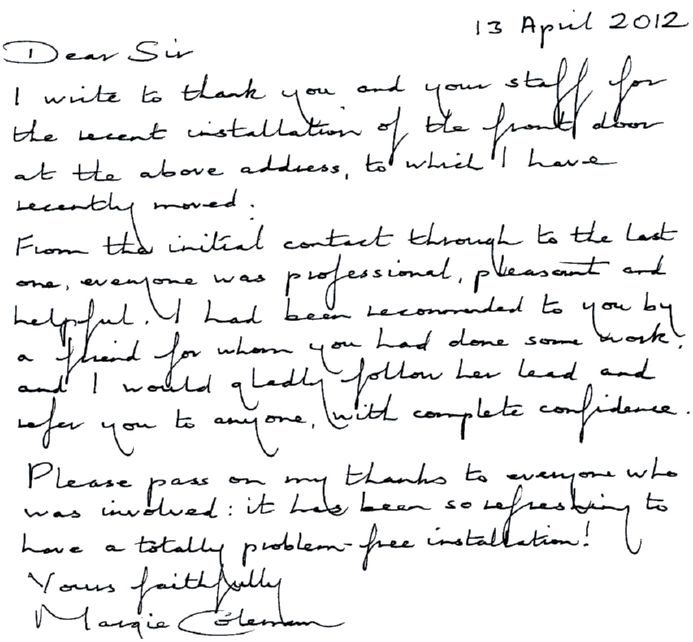 13 April 2012
Dear Sir
I write to thank you and your staff for
the recent installation of the front door
at the above address, to which I have
recently moved.
From the initial contact through to the last
one, everyone was professional, pleasant and
helpful. I had been recommended to you by
a friend for whom you had done some work,
and I would gladly follow her lead and
refer you to anyone, with complete confidence.
Please pass on my thanks to everyone who
was involved: it has been so refreshing to
have a totally problem-free installation!
Yours faithfully
Margie Coleman